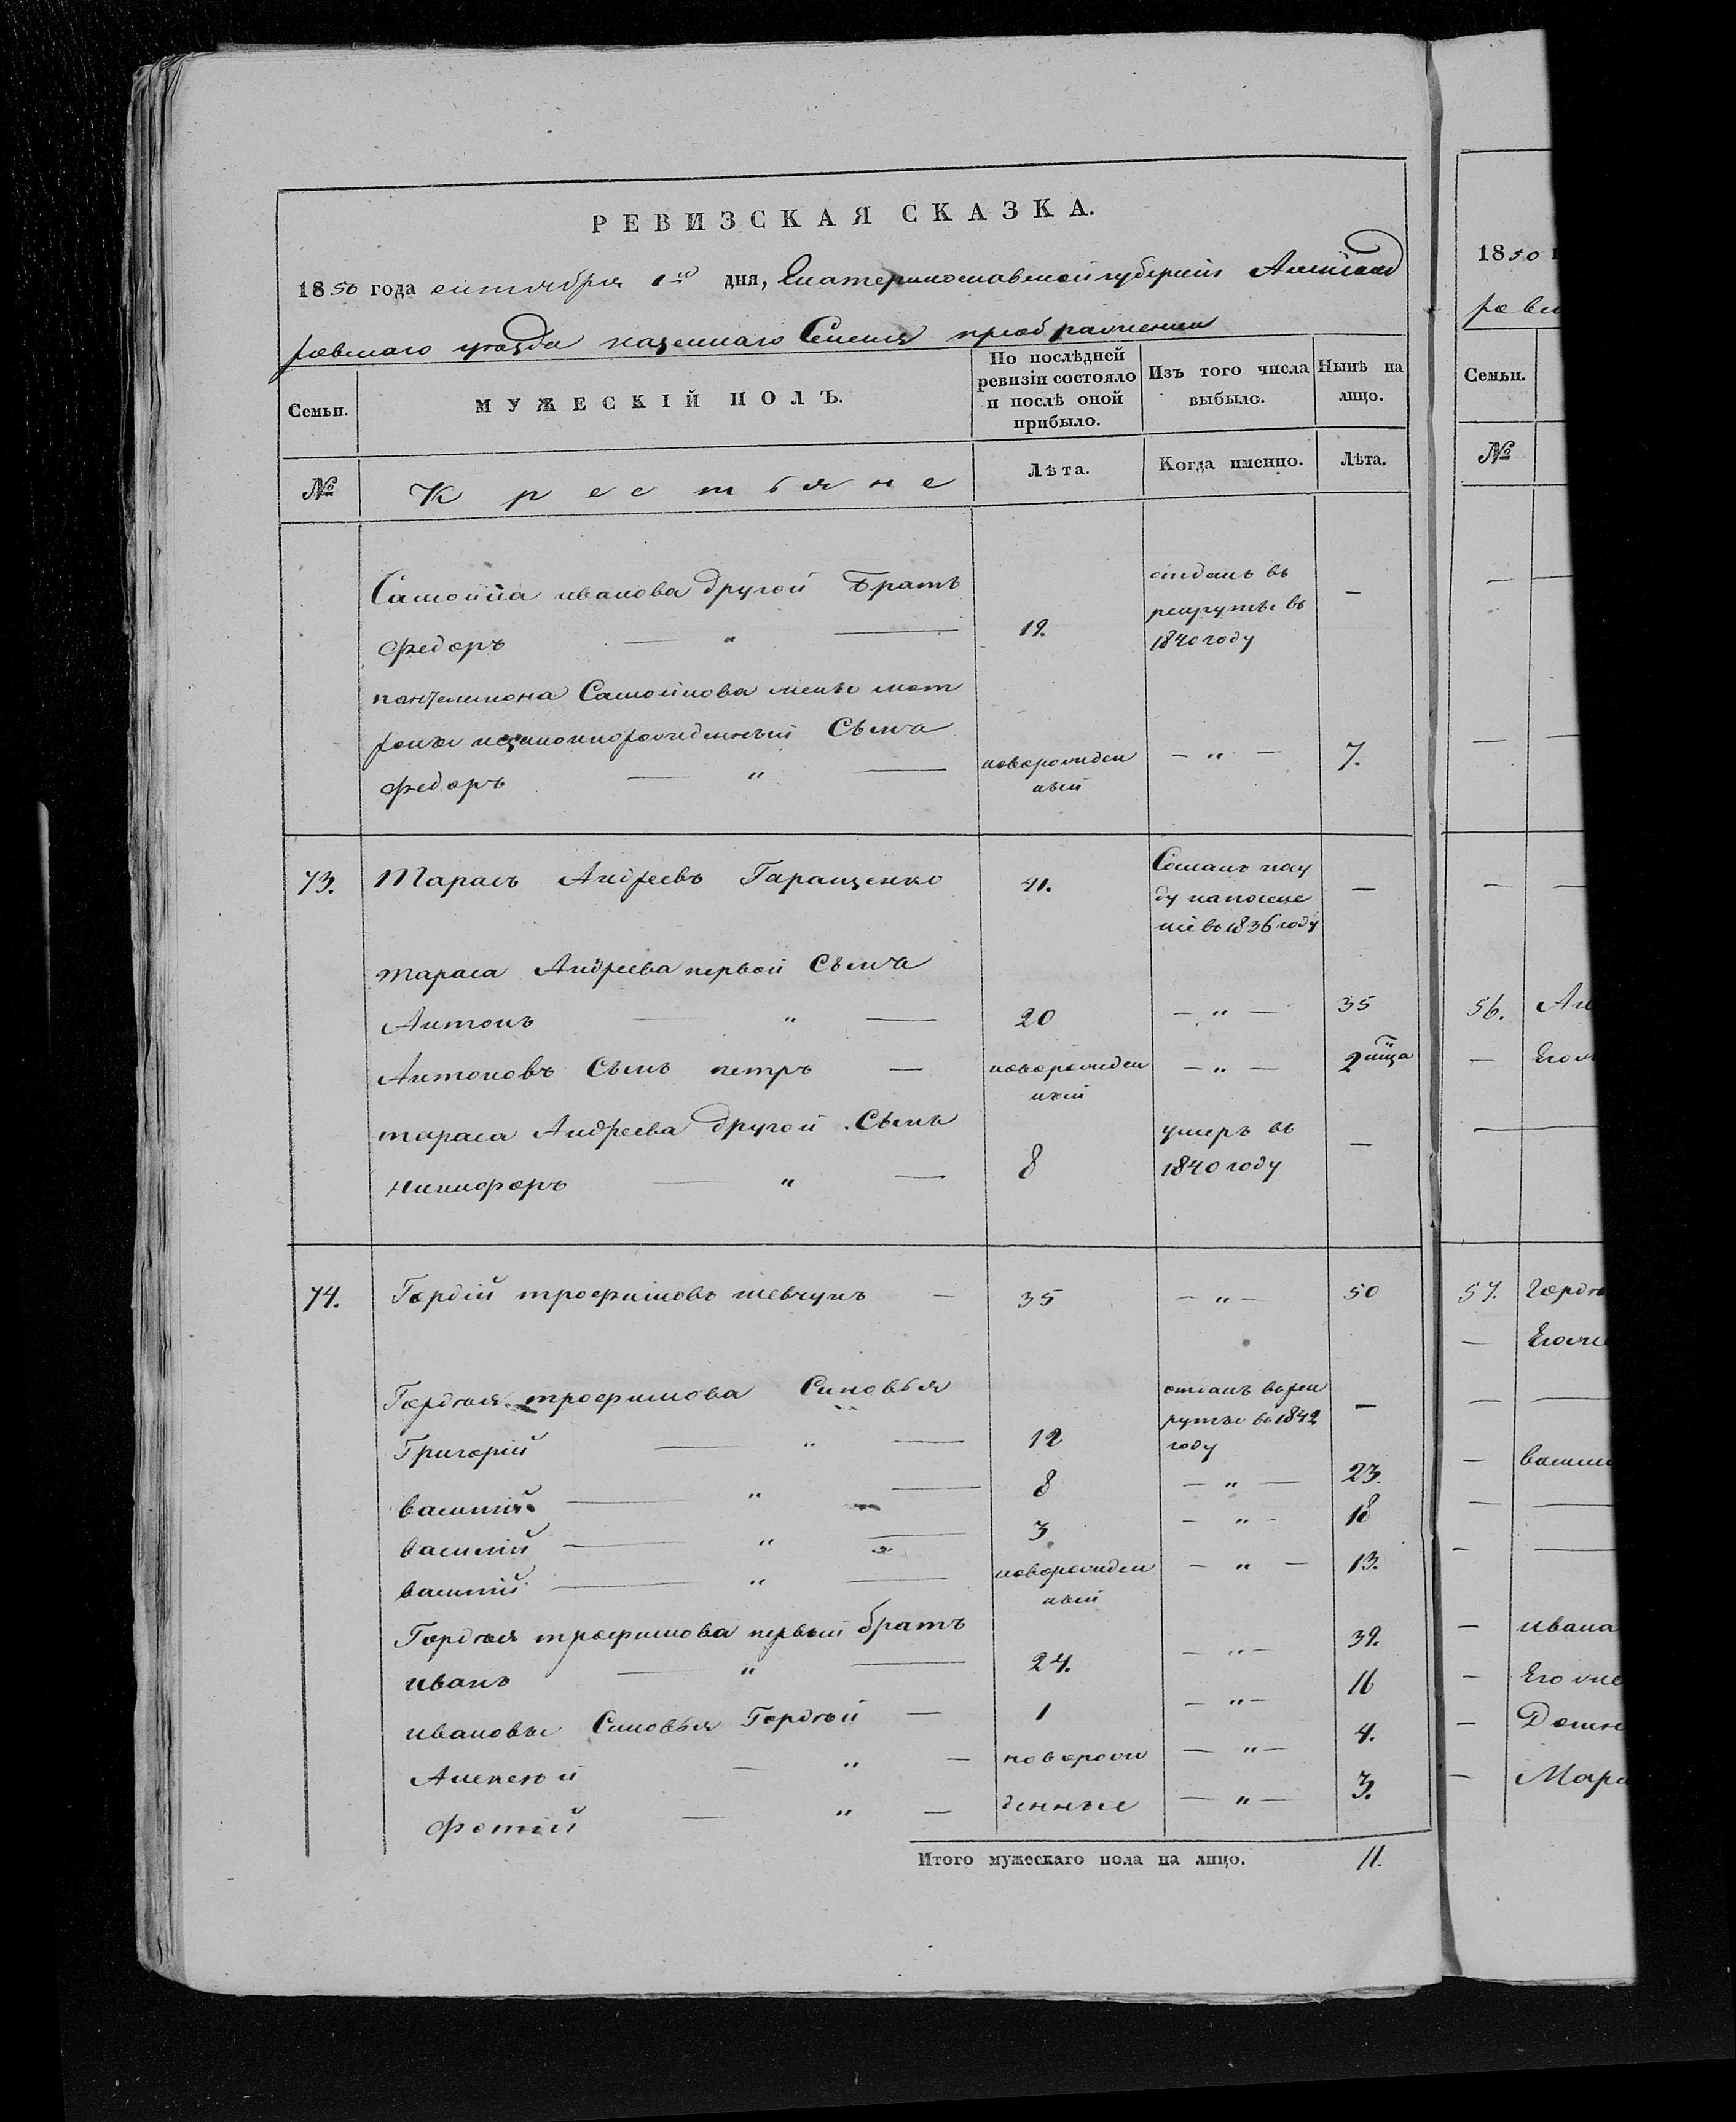 РЕВИЗСКАЯ СКАЗКА.
1850 года сентября 1го дня, Екатеринославской губернии Александ
ровскаго уезда казеннаго Селения преображенки
Семьи.
МУЖЕСКІЙ ПОЛЪ.
По послѣдней ревизіи состояло и послѣ оной прибыло.
Изъ того числа выбыло.
Нынѣ на лицо.
№
Крестьяне
Лѣта.
Когда именно.
Лѣта.
Самойла иванова другой Братъ
Федоръ — " — 19. отданъ въ рекруты въ 1840 году —
пантелимона Самойлова жены мат
роны незаконнорожденный Сынъ
Федоръ — " — новорожден ный — " — 7.
73. Тарасъ Андреевъ Гаращенко 41. Сосланъ на поселе ніе въ 1836 году —
тараса Андреева первой Сынъ
Антонъ — " — 20 — " — 35
Антоновъ Сынъ петръ — новорожден ный — " — 2
тараса Андреева другой Сынъ
никифоръ — " — 8 умеръ въ 1840 году —
74. Гордій трофимовъ шевчукъ — 35 — " — 50
Гордѣя трофимова Синовья
Григорій — " — 12 отданъ въ рек руты въ 1842 году —
василій — " — 8 — " — 23.
василій — " — 3 — " — 18
василій — " — новорожден ный — " — 13.
Гордѣя трофимова первый братъ
иванъ — " — 24. — " — 39.
ивановы Синовья Гордѣй — 1 — " — 16
Алексѣй — " — новорож — " — 4.
Фотій — " — денные — " — 3.
Итого мужескаго пола на лицо. 11.
1850
ровс
Семьи.
№
56. Ан
— Его
57. Горд
— Его же
— васил
— ивана
— Его же
— Домн
— Мари